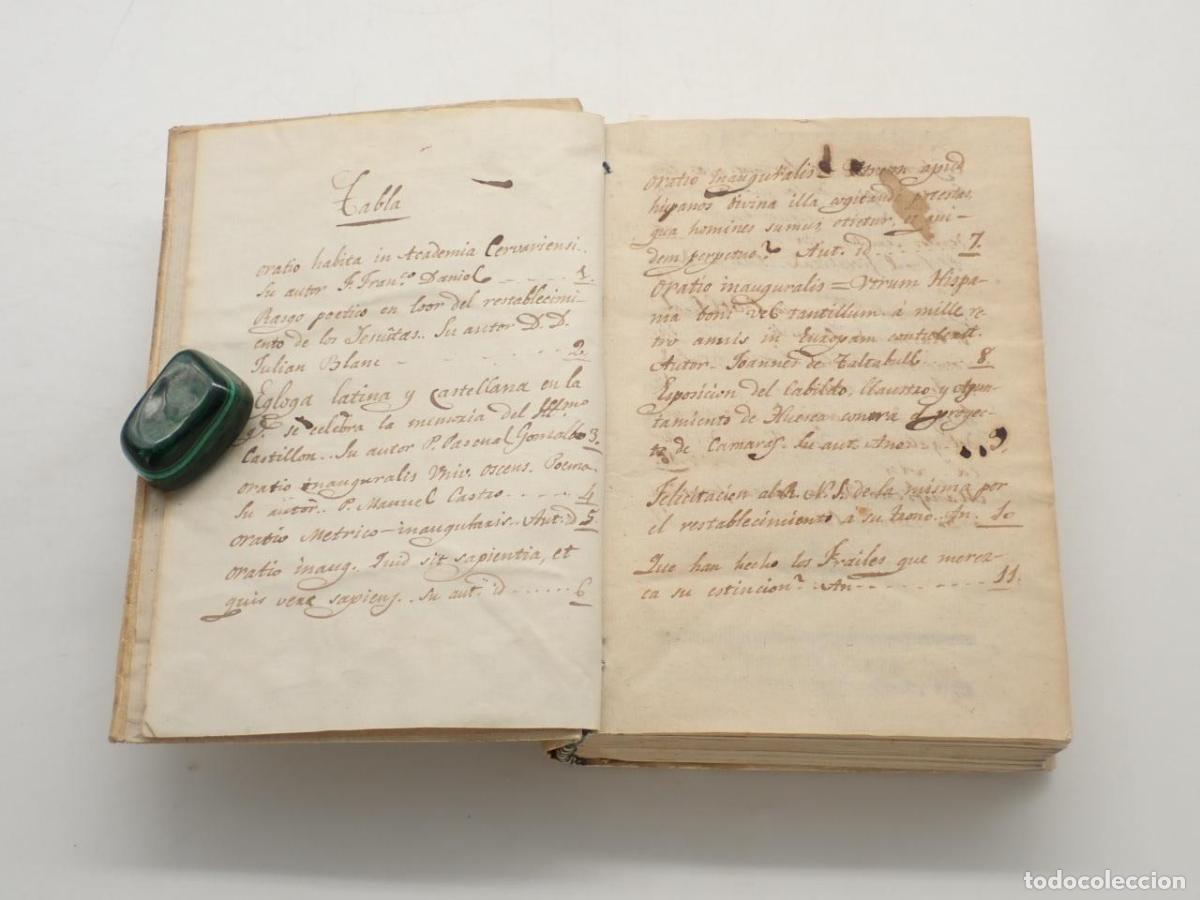 Tabla
Oratio habita in Academia Cervariensi.
Su autor F. Fran.co Daniel - - - - 1.
Rasgo poetico en loor del restablecimi-
ento de los Jesuitas.. Su autor D. D.
Julian Blanc - - - - - 2.
Egloga latina y Castellana en la
q.e se celebra la memoria del Ill.mo
Castillon.. Su autor P. Pascual Gonzalbo 3.
Oratio inauguralis Univ. Oscens. Poema
Su autor.. P. Manuel Castro - - - - 4
Oratio Metrico-inauguralis.. Aut. id 5.
Oratio inaug. Quid sit sapientia, et
quis vere sapiens.. Su aut. id ...... 6
Oratio inauguralis = Utrum apud
hispanos divina illa cogitandi potestas,
qua homines sumus, otietur, et qui-
dem perpetuo? Aut. id - - - 7.
Oratio inauguralis = Utrum Hispa-
nia boni vel tantillum a mille re-
tro annis in Europam
Autor - Joannes de - - - 8.
Esposicion del Cabildo, Claustro y Ayun-
tamiento de Huesca contra el proyec-
to de Camaras. Su aut. Ano - - 9.
Felicitacion al R. N. S. de la misma por
el restablecimiento a su trono.. An. 10
Que han hecho los Frailes que merez-
ca su estincion? - - An - - - - - 11.
todocoleccion